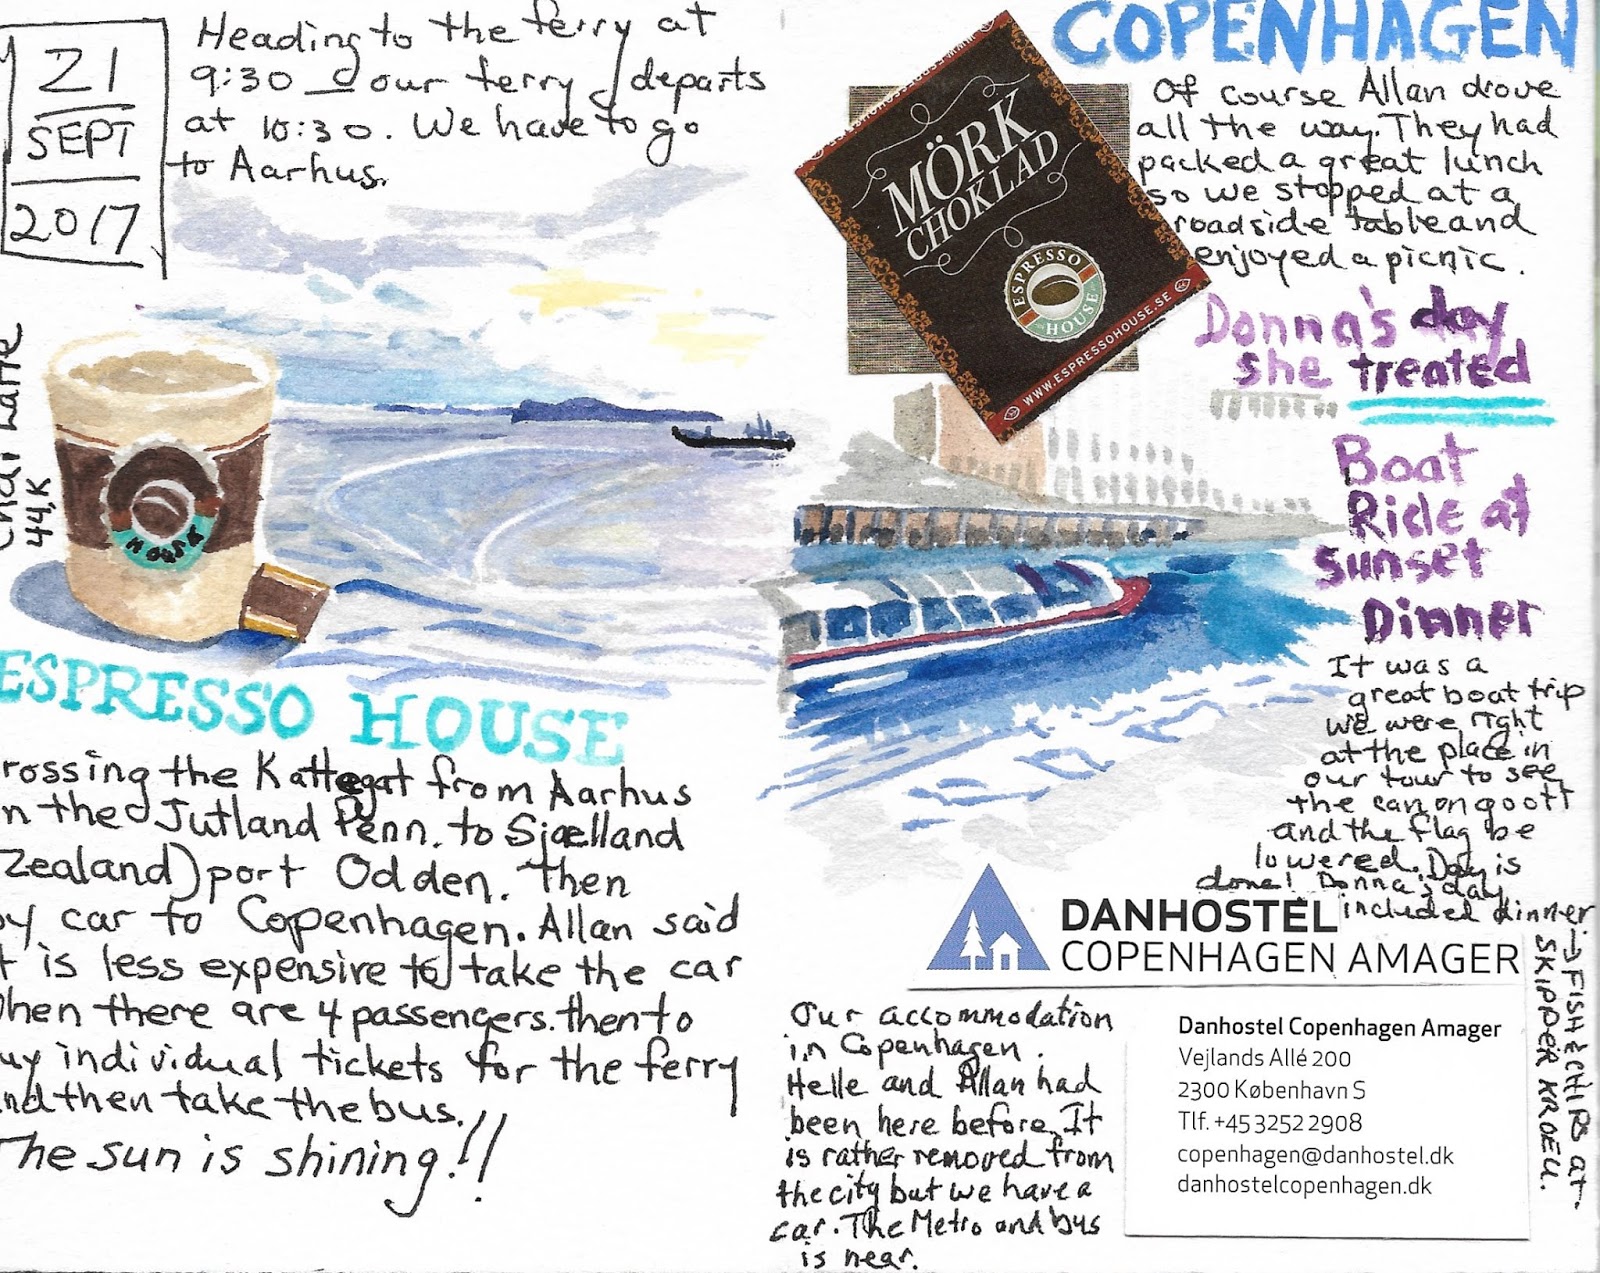 21
SEPT
2017
Heading to the ferry at
9:30 – our ferry departs
at 10:30. We have to go
to Aarhus.
Chai Latte
44,K
HOUSE
ESPRESSO HOUSE
rossing the Kattegat from Aarhus
n the Jutland Penn. to Sjælland
Zealand) port Odden. Then
by car to Copenhagen. Allan said
t is less expensive to take the car
hen there are 4 passengers. then to
uy individual tickets for the ferry
nd then take the bus.
The sun is shining!!
COPENHAGEN
MÖRK
CHOKLAD
ESPRESSO
HOUSE
WWW.ESPRESSOHOUSE.SE
Of course Allan drove
all the way. They had
packed a great lunch
so we stopped at a
roadside table and
enjoyed a picnic.
Donna's day
she treated
Boat
Ride at
Sunset
Dinner
It was a
great boat trip
we were right
at the place in
our tour to see
the canon go off
and the flag be
lowered. Day is
done! Donna's day
included dinner → FISH & CHIPS at
SKIPPER KROEN.
DANHOSTEL
COPENHAGEN AMAGER
Our accommodation
in Copenhagen.
Helle and Allan had
been here before. It
is rather removed from
the city but we have a
car. The Metro and bus
is near.
Danhostel Copenhagen Amager
Vejlands Allé 200
2300 København S
Tlf. +45 3252 2908
copenhagen@danhostel.dk
danhostelcopenhagen.dk